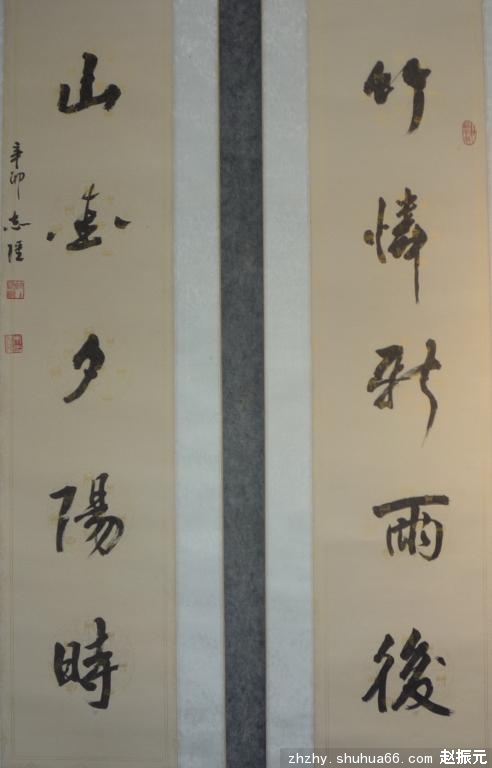 竹憐新雨後
山愛夕陽時
辛卯 志
zhzhy.shuhua66.com 赵振元